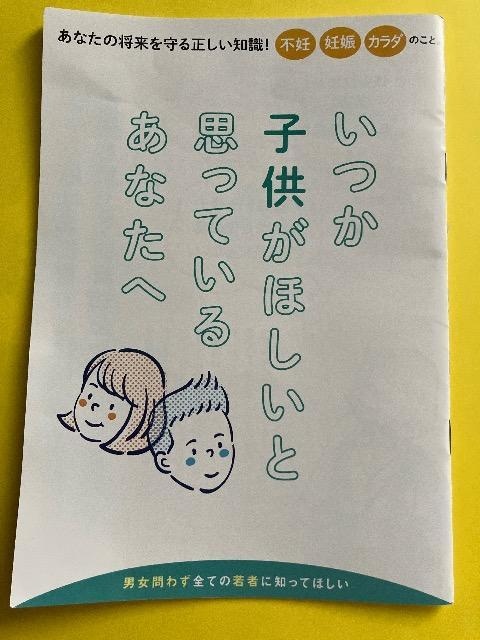 あなたの将来を守る正しい知識! 不妊 妊娠 カラダ のこと。
いつか
子供がほしいと
思っている
あなたへ
男女問わず全ての若者に知ってほしい